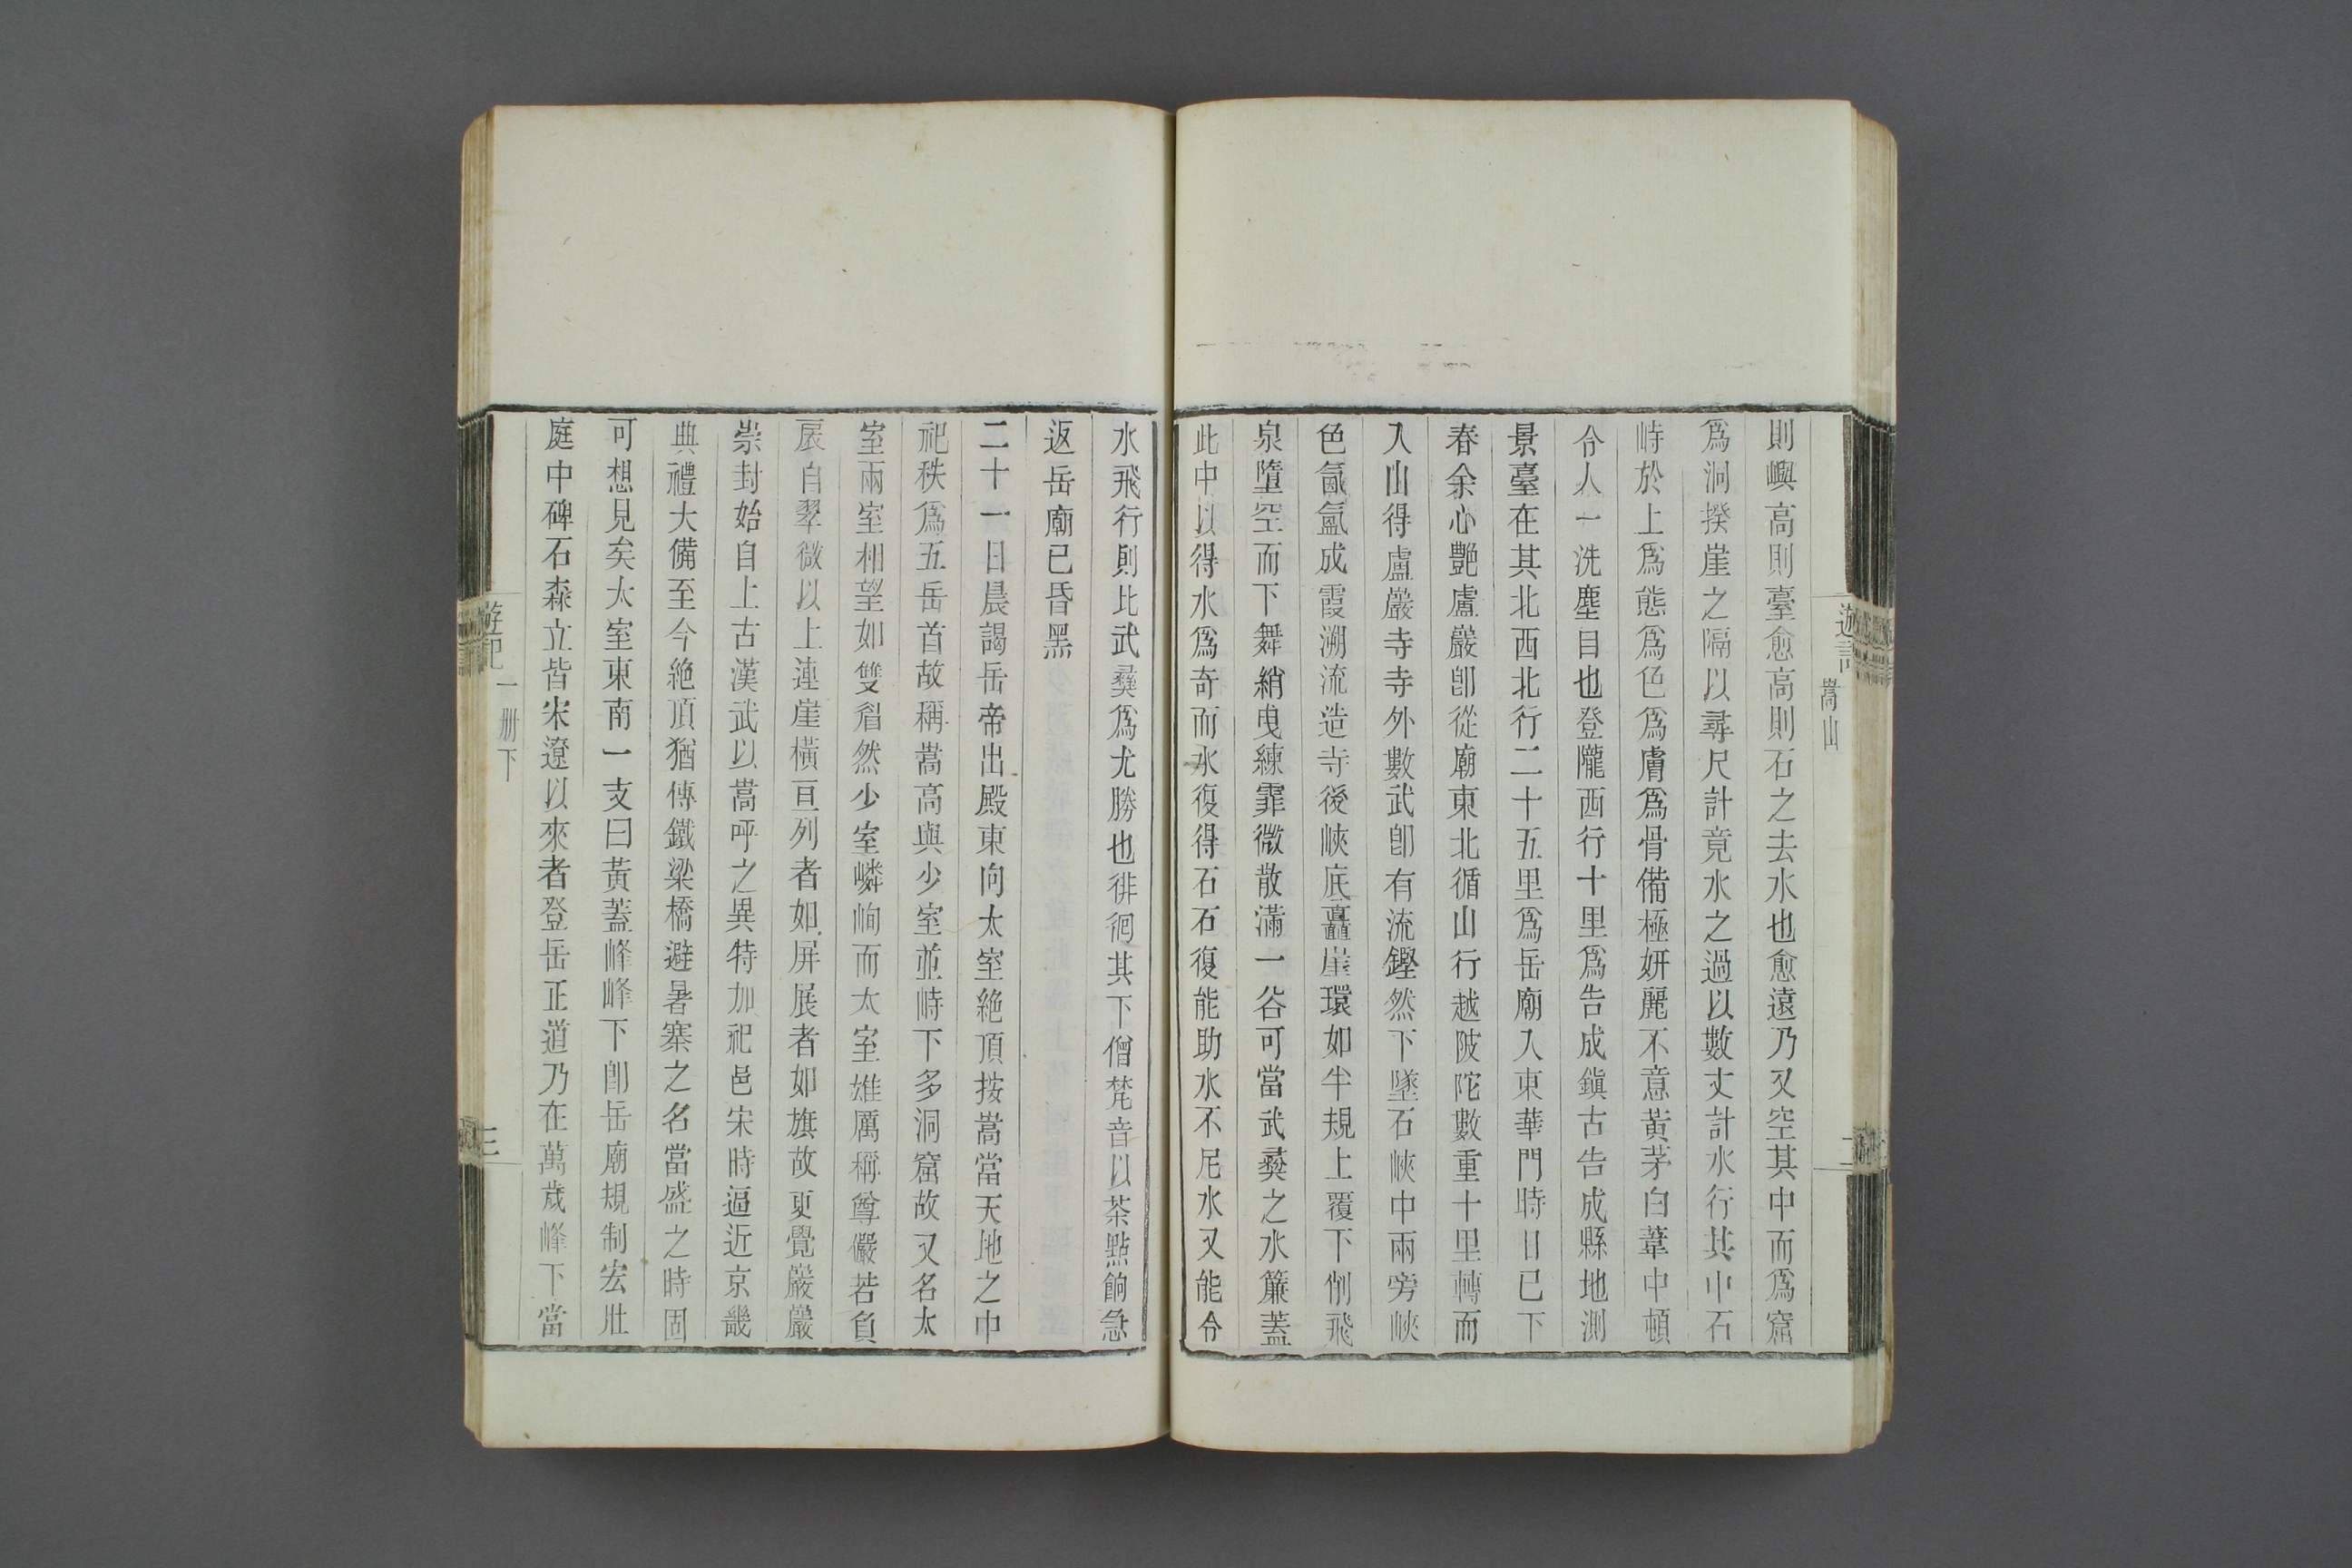 遊記
嵩山
則嶼高則臺愈高則石之去水也愈遠乃又空其中而爲窟
爲洞揆崖之隔以尋尺計竟水之過以數丈計水行其中石
峙於上爲態爲色爲膚爲骨備極妍麗不意黃茅白葦中頓
令人一洗塵目也登隴西行十里爲告成鎮古告成縣地測
景臺在其北西北行二十五里爲岳廟入東華門時日已下
春余心艷盧巖卽從廟東北循山行越陂陀數重十里轉而
入山得盧巖寺寺外數武卽有流鏗然下墜石峽中兩旁峽
色氤氳成霞溯流造寺後峽底矗崖環如半規上覆下削飛
泉墮空而下舞綃曳練霏微散滿一谷可當武彝之水簾蓋
此中以得水爲奇而水復得石石復能助水不尼水又能令
水飛行則比武彝爲尤勝也徘徊其下僧梵音以茶點餉急
返岳廟已昏黑
二十一日晨謁岳帝出殿東向太室絶頂按嵩當天地之中
祀秩爲五岳首故稱嵩高與少室並峙下多洞窟故又名太
室兩室相望如雙眉然少室嶙峋而太室雄厲稱尊儼若負
扆自翠微以上連崖橫亘列者如屏展者如旗故更覺巖巖
崇封始自上古漢武以嵩呼之異特加祀邑宋時逼近京畿
典禮大備至今絶頂猶傳鐵梁橋避暑寨之名當盛之時固
可想見矣太室東南一支曰黃蓋峰峰下卽岳廟規制宏壯
庭中碑石森立皆宋遼以來者登岳正道乃在萬歲峰下當
遊記
一册下
三